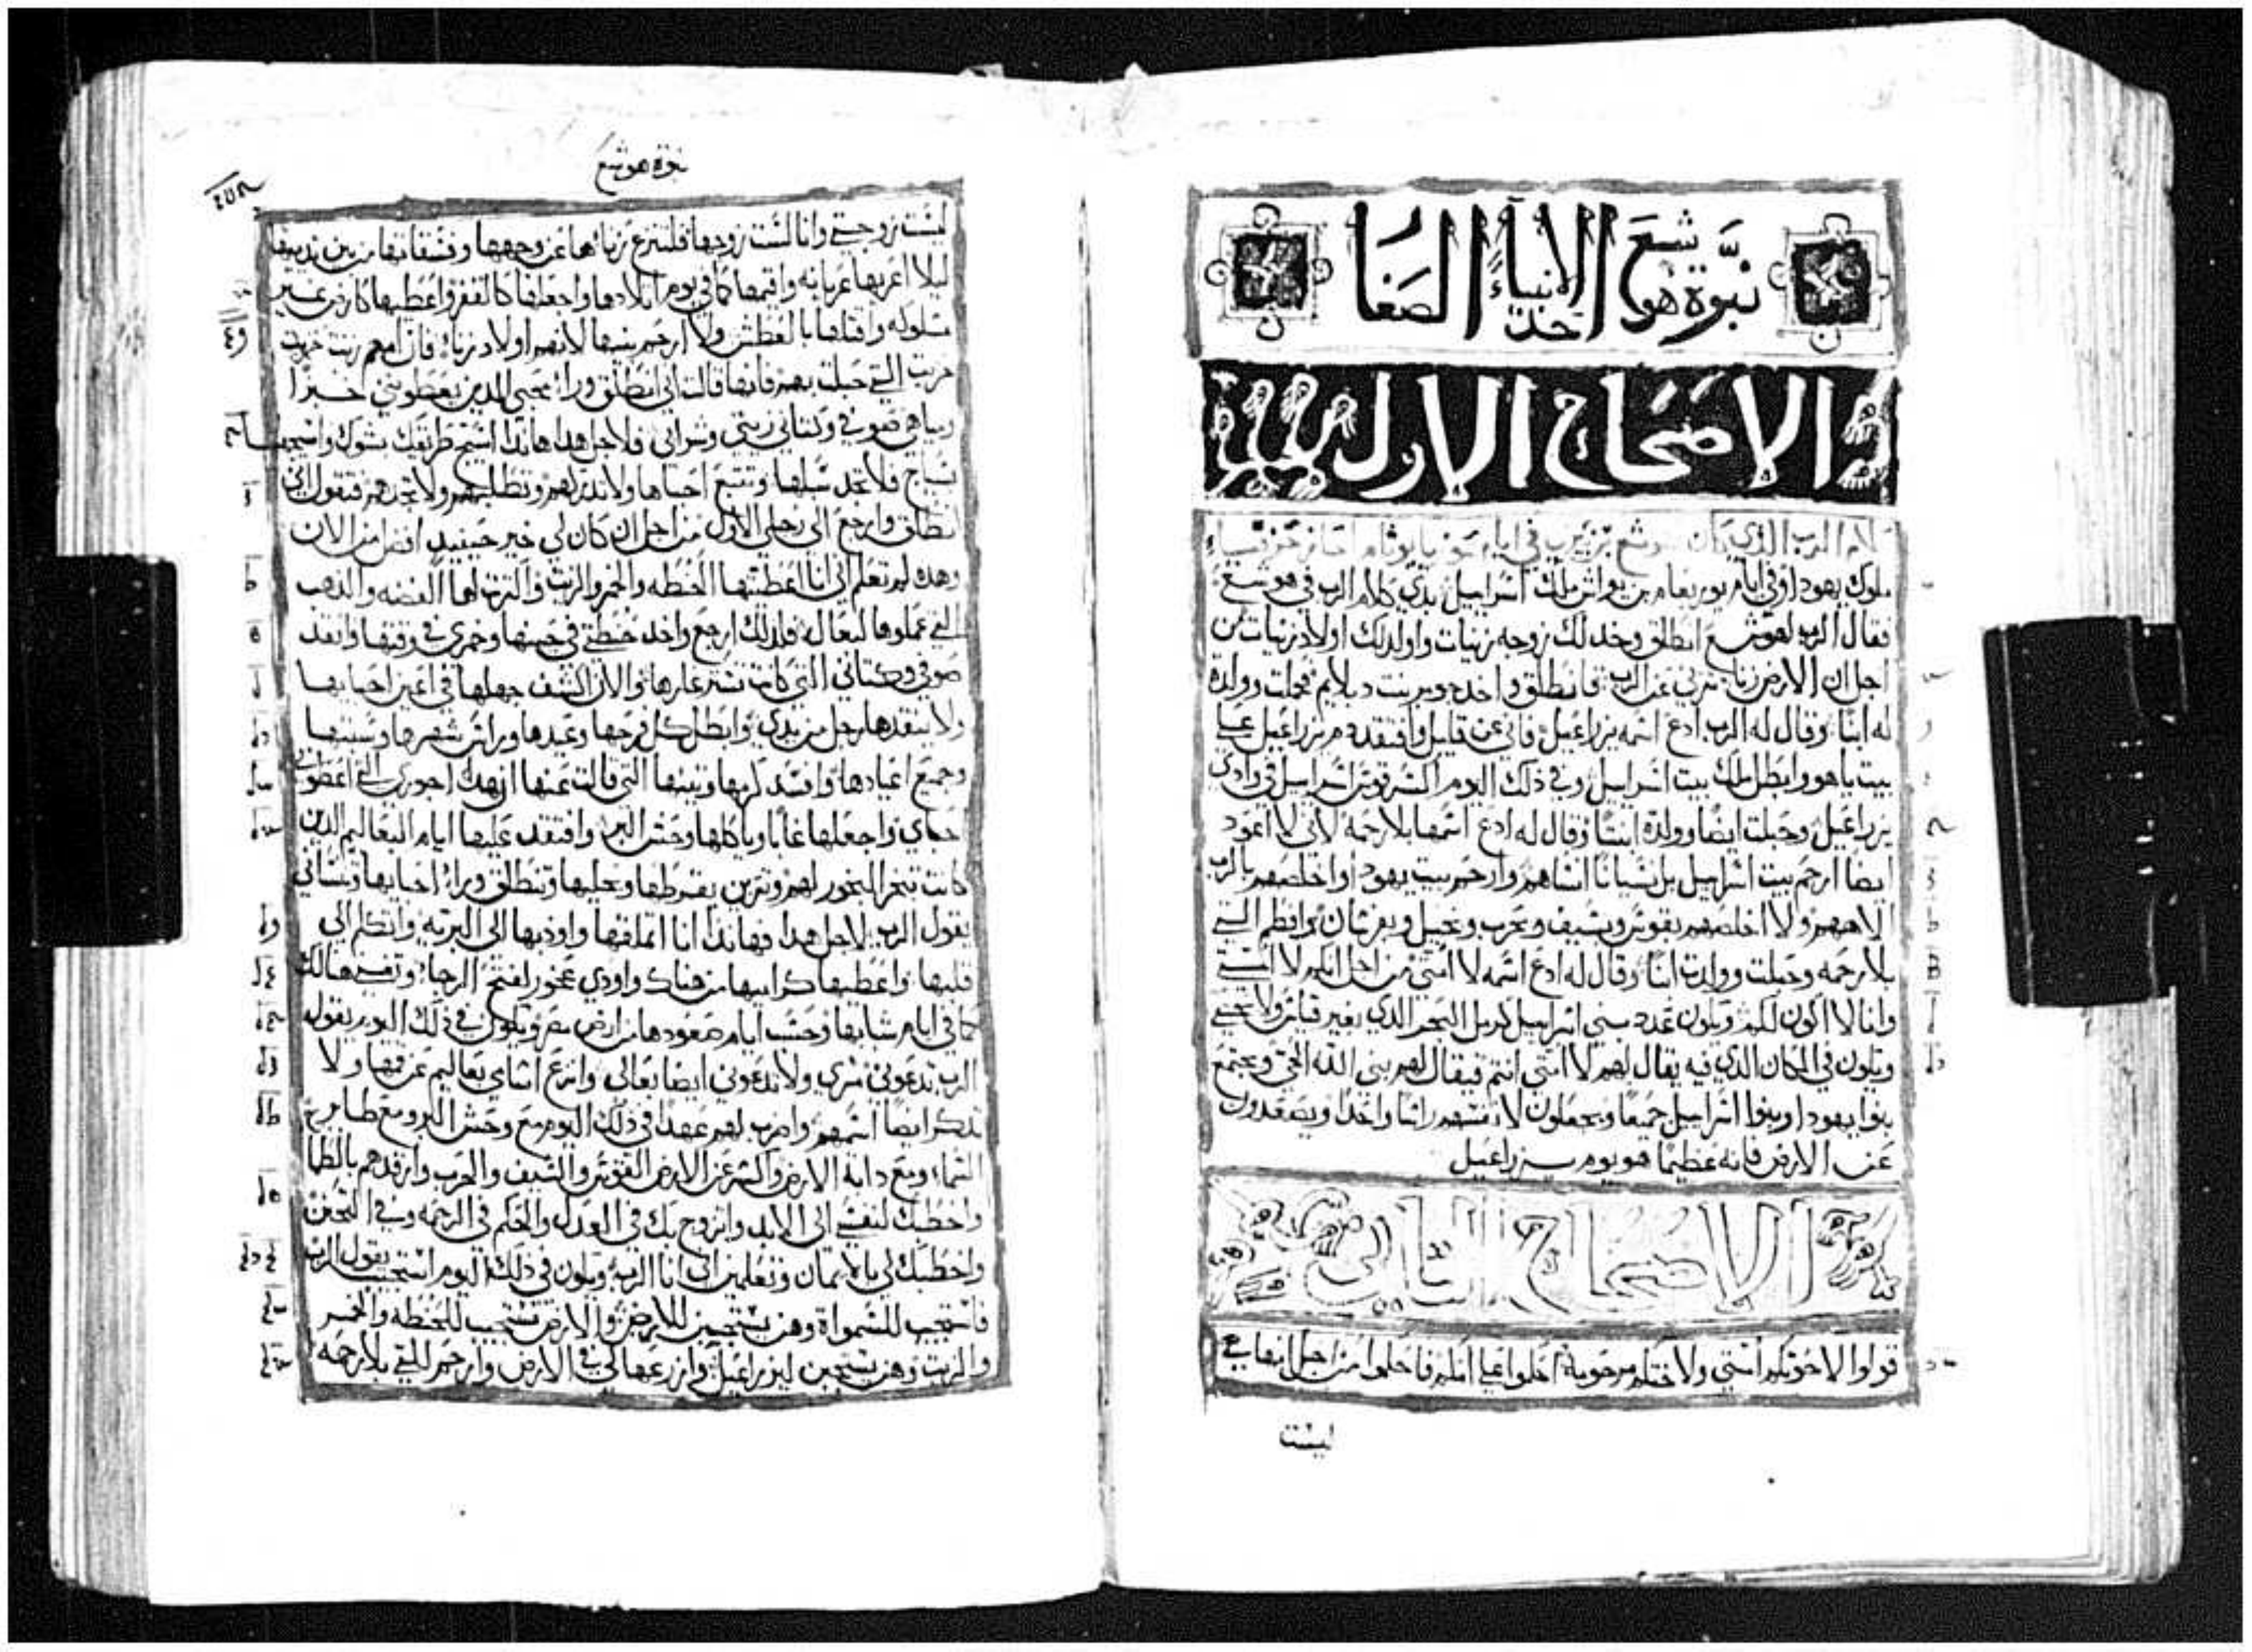 نبوة هوشع احد الانبياء الصغار
الاصحاح الاول
كلام الرب الذي كان هوشع بن بيري في ايام عوزيا يوثام احاز حزقيا
ملوك يهودا وفي ايام يوربعام بن يواش ملك اسراييل بدي كلام الرب في هوشع
فقال الرب لهوشع انطلق وخد لك زوجه زنيات واولد لك اولاد زنيات من
اجل ان الارض زنا تزني عن الرب فانطلق واخد جومر بنت دبلايم فحبلت وولدة
له ابنا وقال له الرب ادع اسمه يزراعيل فاني عن قليل وافتقد دم يزراعيل علي
بيت ياهو وابطل ملك بيت اسراييل وفي ذلك اليوم اكسر قوس اسراييل في وادي
يزراعيل وحبلت ايضا وولدة ابنتا وقال له ادع اسمها بلا رحمة لاني لا اعود
ايضا ارحم بيت اسراييل بل نسيانا انساهم وارحم بيت يهودا واخلصهم بالرب
الاههم ولا اخلصهم بقوس وبسيف وبحرب وبخيل وبفرسان وافطم التي
بلا رحمه وحبلت وولدت ابنا وقال له ادع اسمه لا امتي من اجل انكم لا امتي
وانا لا اكون لكم ويكون عدد بني اسراييل كرمل البحر الدي بغير قياس ولا يحصي
ويكون في المكان الدي فيه يقال لهم لا امتي انتم فيقال لهم بني الله الحي ويجتمع
بنوا يهودا وبنوا اسراييل جميعا ويجعلون لانفسهم راسا واحدا ويصعدون
عن الارض فانه عظيما هو يوم يزراعيل
الاصحاح التاني
قولوا لاخوتكم امتي ولاختكم مرحومة احكموا علي امكم فاحكموا من اجل انها هي
ليست
نبوة هوشع
ليست زوجتي وانا لست زوجها فلتنزع زناءها عن وجهها وفسقاتها من بين تدييها
ليلا اعريها عريانه واقيمها كما في يوم ميلادها واجعلها كالقفر واعطيها كارض غير
مسلوكه واقتلها بالعطش ولا ارحم بنيها لانهم اولاد زناء فان امهم زنت خزيت
خزيت التي حبلت بهم فانها قالت اني انطلق وراء محبي الدين يعطوني خبزا
ومياهي صوفي وكتاني زيتي وشرابي فلاجل هدا هاندا اسيج طريقك بشوك واسيجها
بسياج فلا تجد سبلها وتتبع احباها ولا تدركهم وتطلبهم ولا تجدهم فتقول اني
انطلق وارجع الي رجلي الاول من اجل ان كان لي خير حينيد افضل من الان
وهده لم تعلم اني انا اعطيتها الحنطه والخمر والزيت واكترت لها الفضه والدهب
التي عملوها لبعال فلدلك ارجع واخد حنطتي في حينها وخمري في وقتها وانقد
صوفي وكتاني التي كانت تستر عارها والان اكشف جهلها في اعين احبابها
ولا ينقدها رجل من يدي وابطل كل فرحها وعيدها وراس شهرها وسبتها
وجميع اعيادها وافسد كرمها وتينها التي قالت عنها ان هده اجوري التي اعطوني
احباي واجعلها غابا وياكلها وحش البر وافتقد عليها ايام البعاليم الدين
كانت تبخر البخور لهم وتزين بقرطها وبحليها وتنطلق وراء احبابها وتنساني
يقول الرب لاجل هدا فهاندا انا اتملقها واوديها الي البريه واتكلم الي
قلبها واعطيها كراميها من هناك ووادي عخور لفتح الرجاء وتغني هنالك
كما في ايام شبابها وحسب ايام صعودها من ارض مصر ويكون في دلك اليوم يقول
الرب تدعوني رجلي ولا تدعوني ايضا بعالي وانزع اسماي بعاليم عن فمها ولا
تدكر ايضا اسمهم واضرب لهم عهدا في دلك اليوم مع وحش البر ومع طاير
السماء ومع دابة الارض واكسر عن الارض القوس والسيف والحرب وارقدهم بالطما
واخطبك لنفسي الي الابد واتزوج بك في العدل والحكم في الرحمه وفي التحنن
واخطبك لي بالايمان وتعلمين اني انا الرب ويكون في دلك اليوم استجيب يقول الرب
فاستجيب للسمواة وهن يستجيبن للارض والارض تستجيب للحنطه والخمر
والزيت وهن يستجبن ليزراعيل وازرعها لي في الارض وارحم للتي بلا رحمه